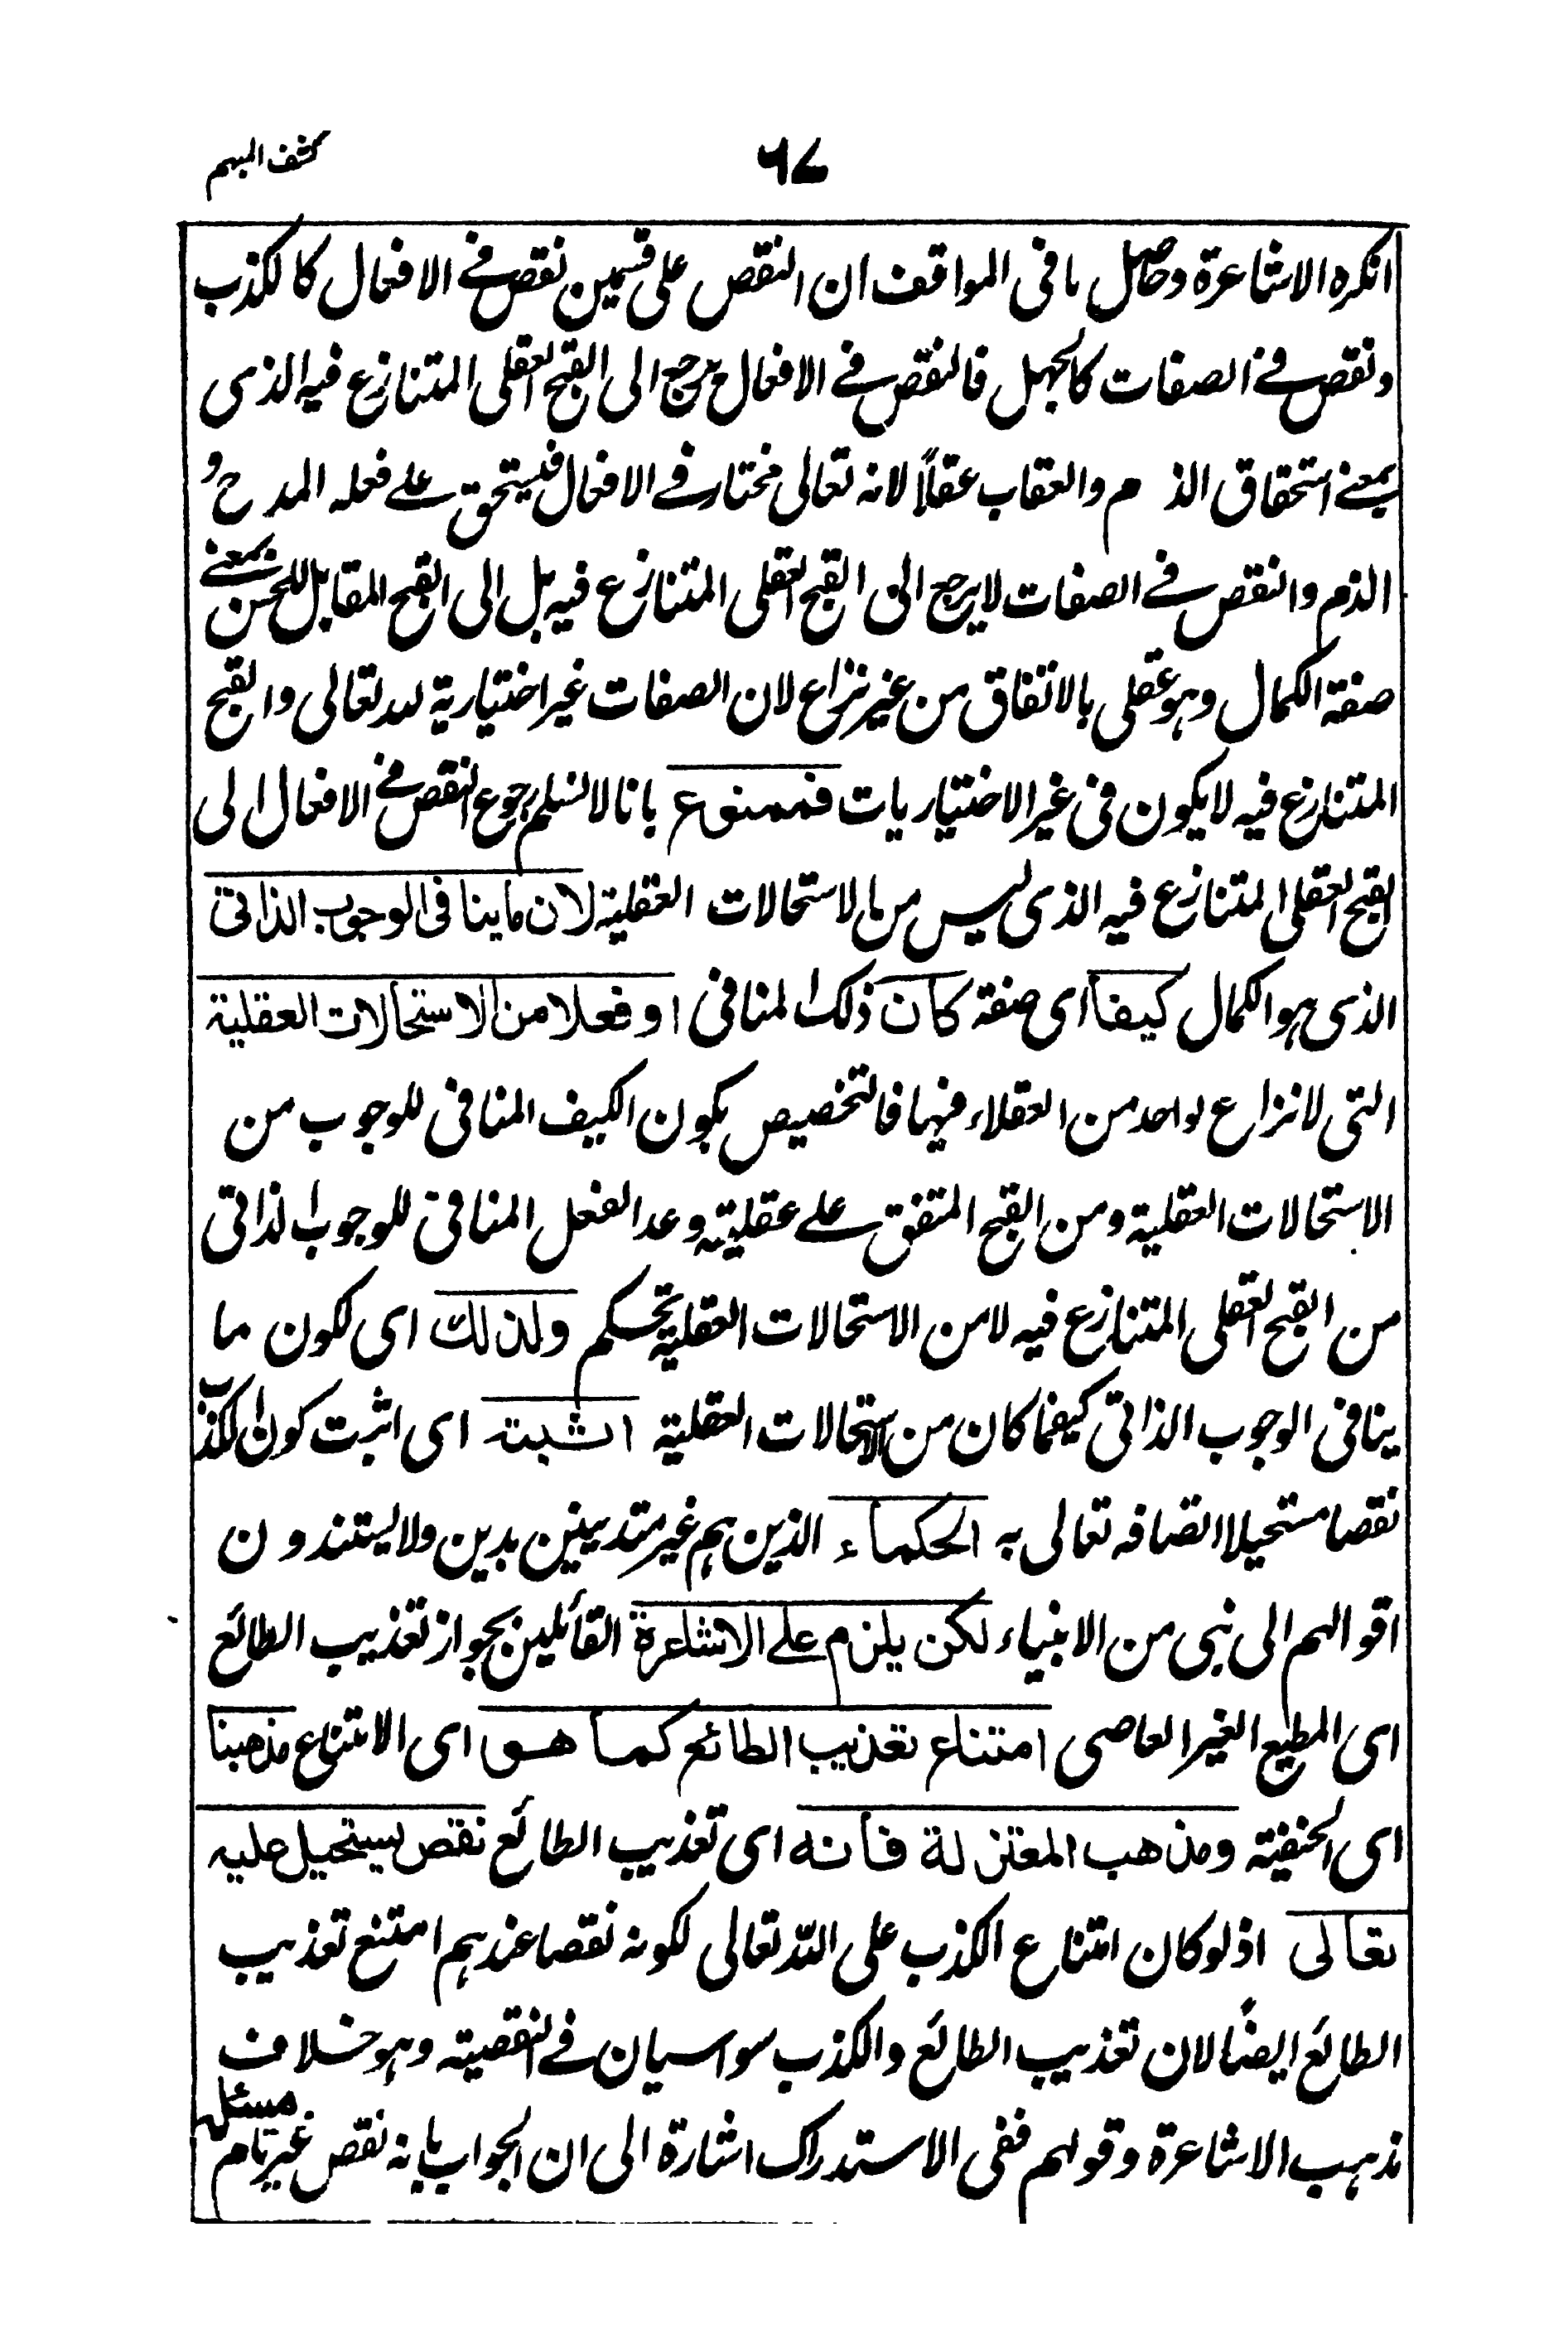 كشف المبهم
٦٧
انكره الاشاعرة وحاصل ما في المواقف ان النقص على قسمين نقص في الافعال كالكذب
ونقص في الصفات كالجهل فالنقص في الافعال يرجع الى القبح العقلي المتنازع فيه الذى
بمعنى استحقاق الذم والعقاب عقلاً لانه تعالى مختار في الافعال فيستحق على فعله المدح و
الذم والنقص في الصفات لا يرجع الى القبح العقلي المتنازع فيه بل الى القبح المقابل للحسن بمعنى
صفة الكمال وهو عقلي بالاتفاق من غير نزاع لان الصفات غير اختيارية لله تعالى والقبح
المتنازع فيه لا يكون في غير الاختياريات فممنوع بانا لا نسلم رجوع النقص في الافعال الى
القبح العقلي المتنازع فيه الذى ليس من الاستحالات العقلية لان ما ينافي الوجوب الذاتي
الذى هو الكمال كيفا اى صفة كان ذلك المنافي او فعلا من الاستحالات العقلية
التي لا نزاع لواحد من العقلاء فيها فالتخصيص بكون الكيف المنافي للوجوب من
الاستحالات العقلية ومن القبح المتفق على عقليته وعد الفعل المنافي للوجوب الذاتي
من القبح العقلي المتنازع فيه لا من الاستحالات العقلية تحكم ولذلك اى لكون ما
ينافي الوجوب الذاتي كيفما كان من الاستحالات العقلية اثبته اى اثبت كون الكذب
نقصا مستحيلا اتصافه تعالى به الحكماء الذين هم غير متدينين بدين ولا يستندون
اقوالهم الى نبي من الانبياء لكن يلزم على الاشاعرة القائلين بجواز تعذيب الطائع
اى المطيع الغير العاصي امتناع تعذيب الطائع كما هو اى الامتناع مذهبنا
اى الحنفية ومذهب المعتزلة فانه اى تعذيب الطائع نقص يستحيل عليه
تعالى اذ لو كان امتناع الكذب على الله تعالى لكونه نقصا عندهم امتنع تعذيب
الطائع ايضًا لان تعذيب الطائع والكذب سواسيان في النقصية وهو خلاف
مذهب الاشاعرة وقولهم ففي الاستدراك اشارة الى ان الجواب بانه نقص غير تام مسئلة